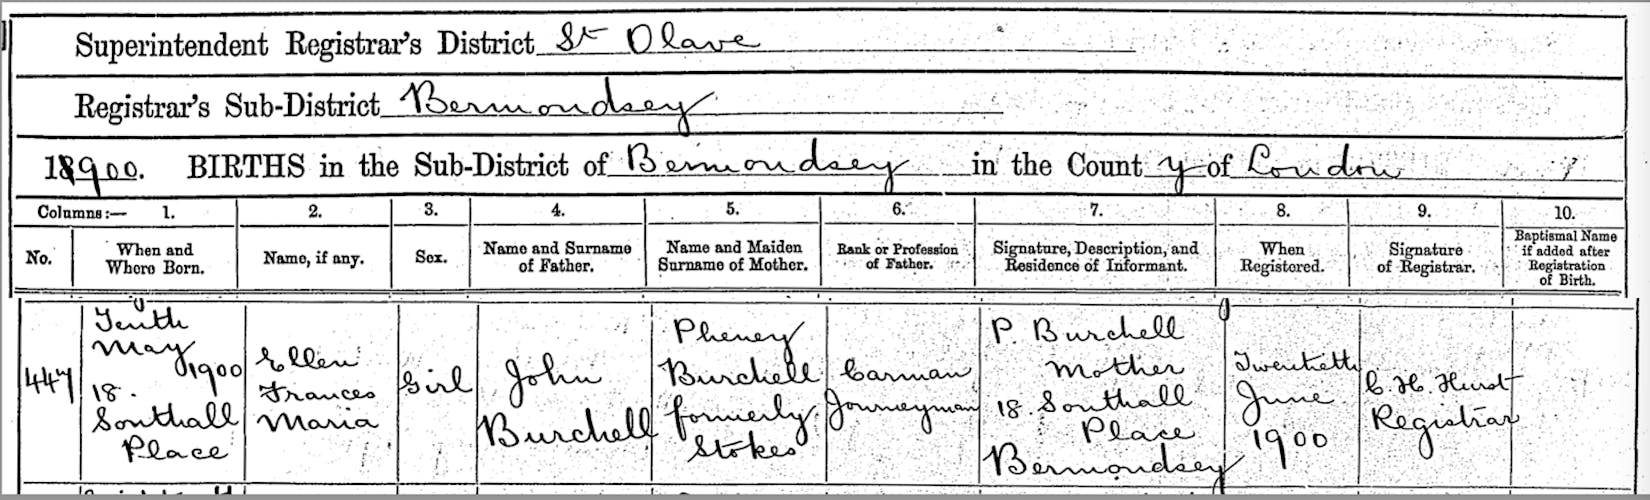 Superintendent Registrar's District St Olave
Registrar's Sub-District Bermondsey
1900. BIRTHS in the Sub-District of Bermondsey in the County of London
Columns:— 1. 2. 3. 4. 5. 6. 7. 8. 9. 10.
No. When and Where Born. Name, if any. Sex. Name and Surname of Father. Name and Maiden Surname of Mother. Rank or Profession of Father. Signature, Description, and Residence of Informant. When Registered. Signature of Registrar. Baptismal Name if added after Registration of Birth.
447
Tenth
May
1900
18.
Southall
Place
Ellen
Frances
Maria
Girl
John
Burchell
Pheney
Burchell
formerly
Stokes
Carman
Journeyman
P. Burchell
Mother
18. Southall
Place
Bermondsey
Twentieth
June
1900
C. H. Hurst
Registrar